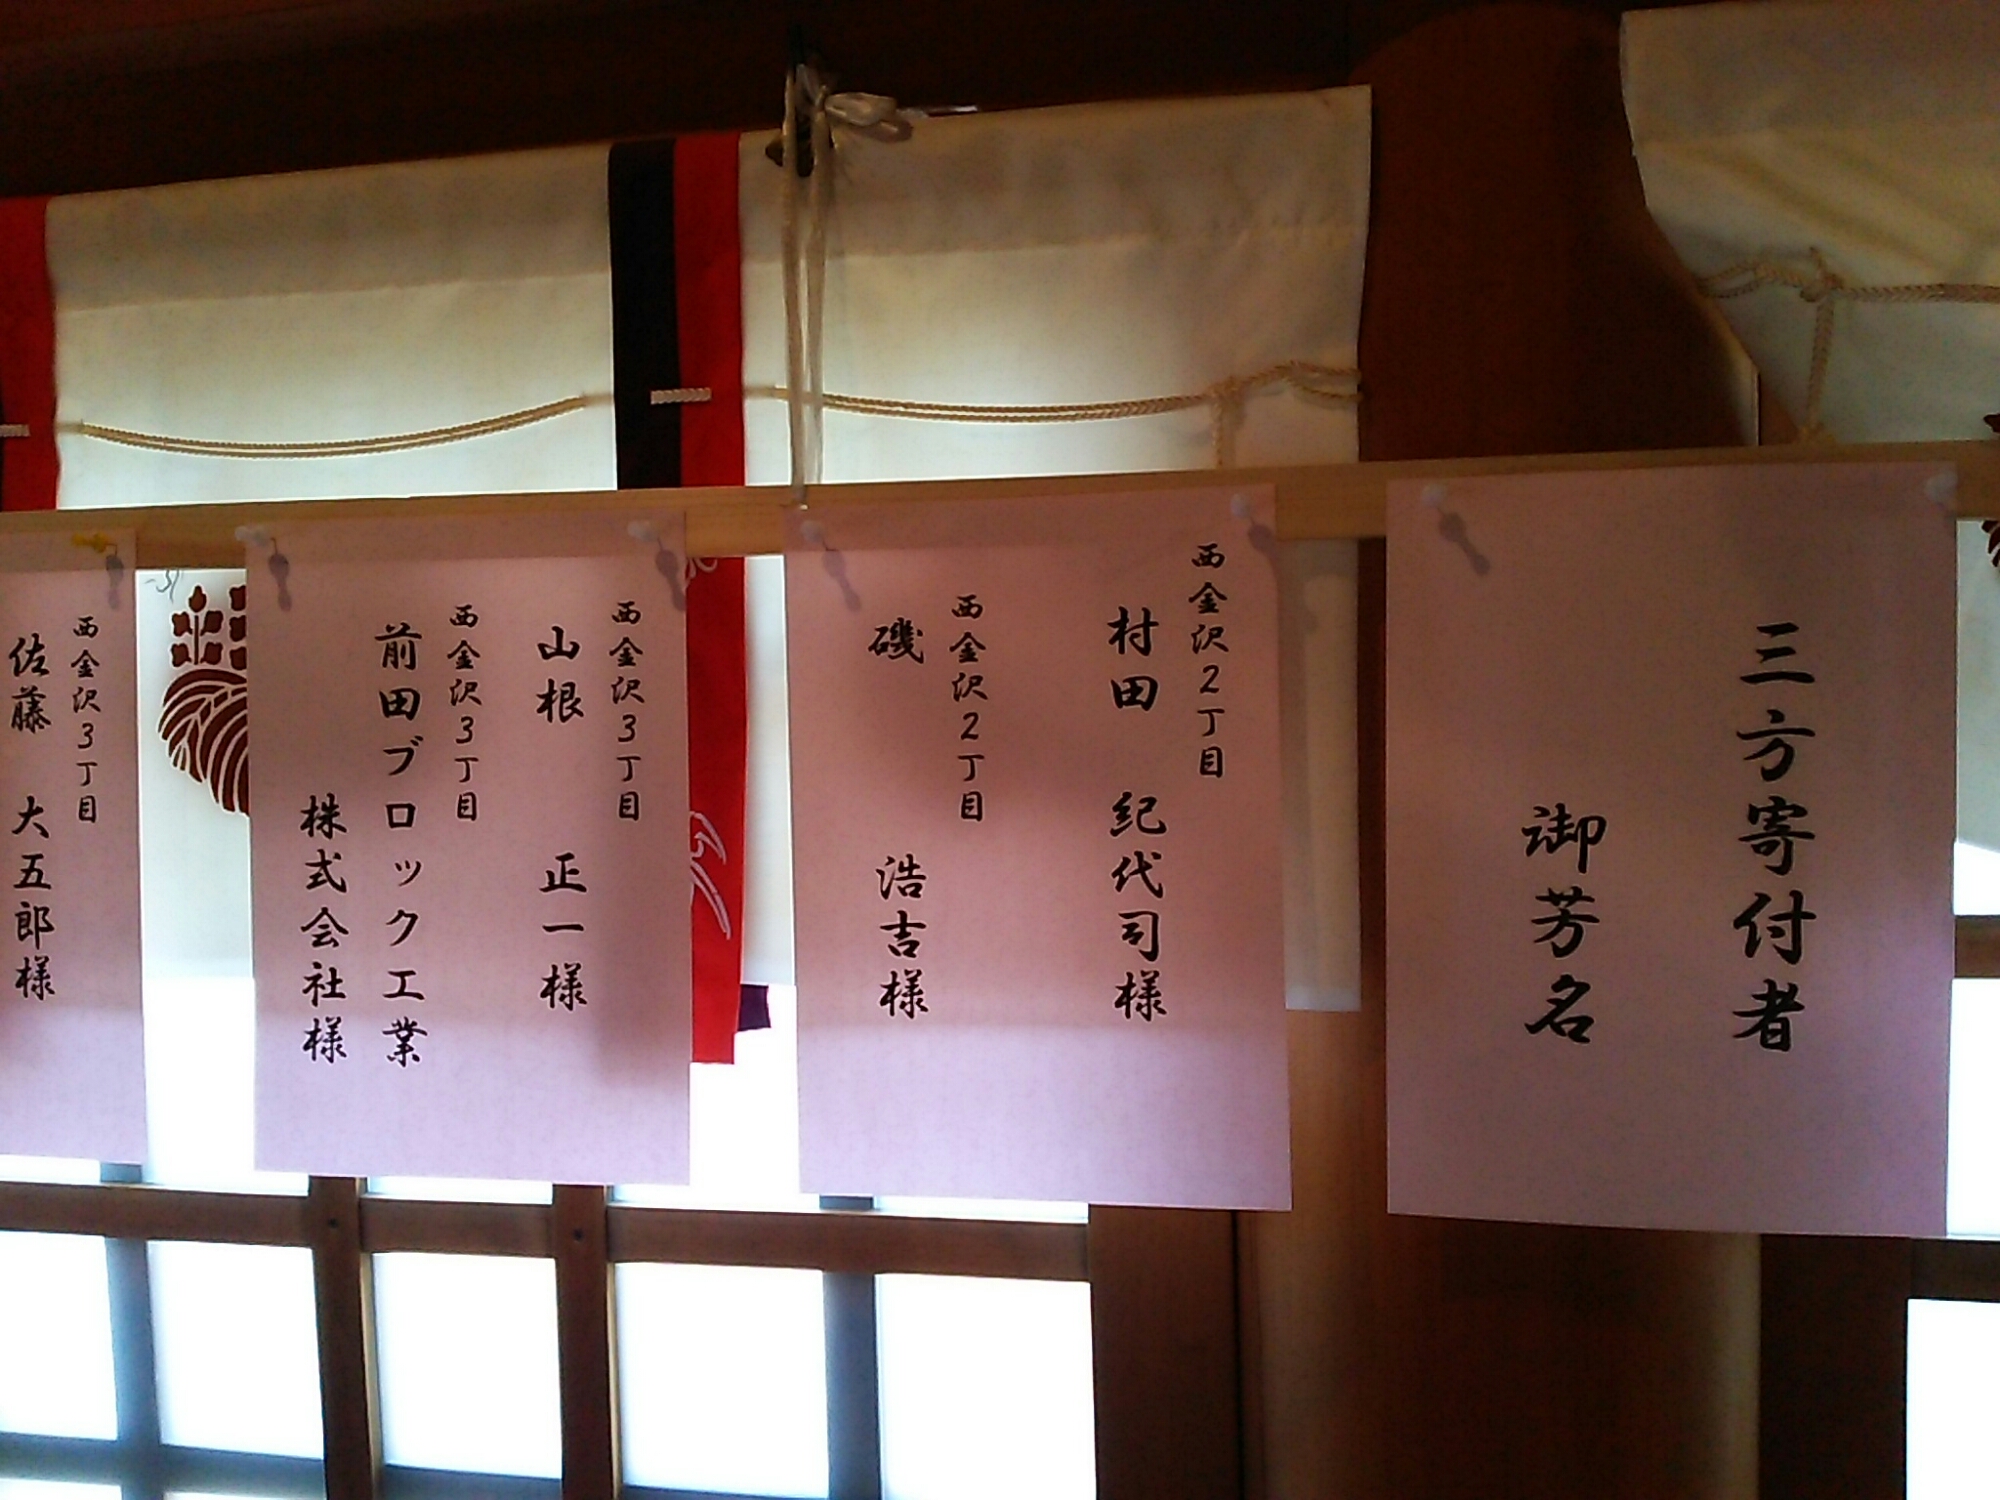 三方寄付者
御芳名
西金沢2丁目
村田 紀代司様
西金沢2丁目
磯 浩吉様
西金沢3丁目
山根 正一様
西金沢3丁目
前田ブロック工業
株式会社様
西金沢3丁目
佐藤 大五郎様